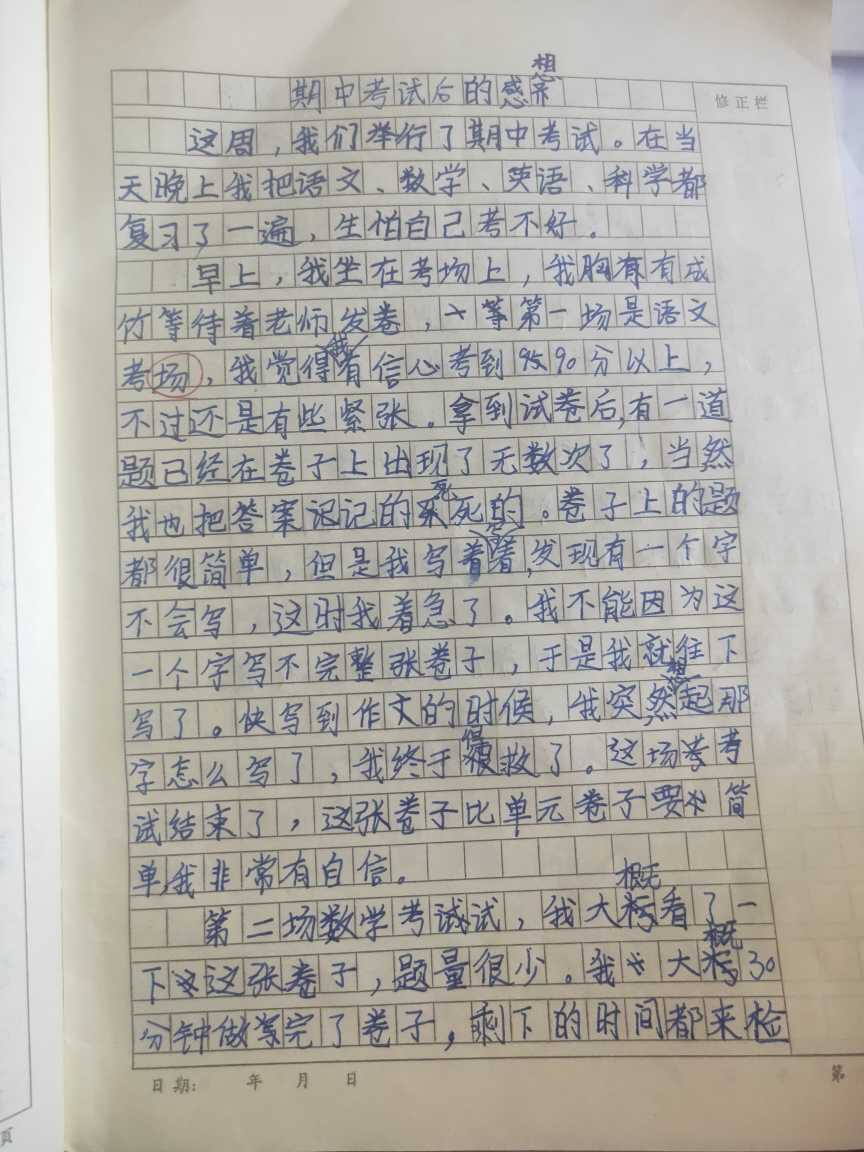 期中考试后的感想
修正栏
这周，我们举行了期中考试。在当
天晚上我把语文、数学、英语、科学都
复习了一遍，生怕自己考不好。
早上，我坐在考场上，我胸有成
竹等待着老师发卷，第一场是语文
考场，我觉得我有信心考到90分以上，
不过还是有些紧张。拿到试卷后，有一道
题已经在卷子上出现了无数次了，当然
我也把答案记记的死死的。卷子上的题
都很简单，但是我写着写着，发现有一个字
不会写，这时我着急了。我不能因为这
一个字写不完整张卷子，于是我就往下
写了。快写到作文的时候，我突然想起那
字怎么写了，我终于得救了。这场考
试结束了，这张卷子比单元卷子要简
单，我非常有自信。
第二场数学考试，我大概看了一
下这张卷子，题量很少。我大概30
分钟做完了卷子，剩下的时间都来检
日期： 年 月 日
第
頁